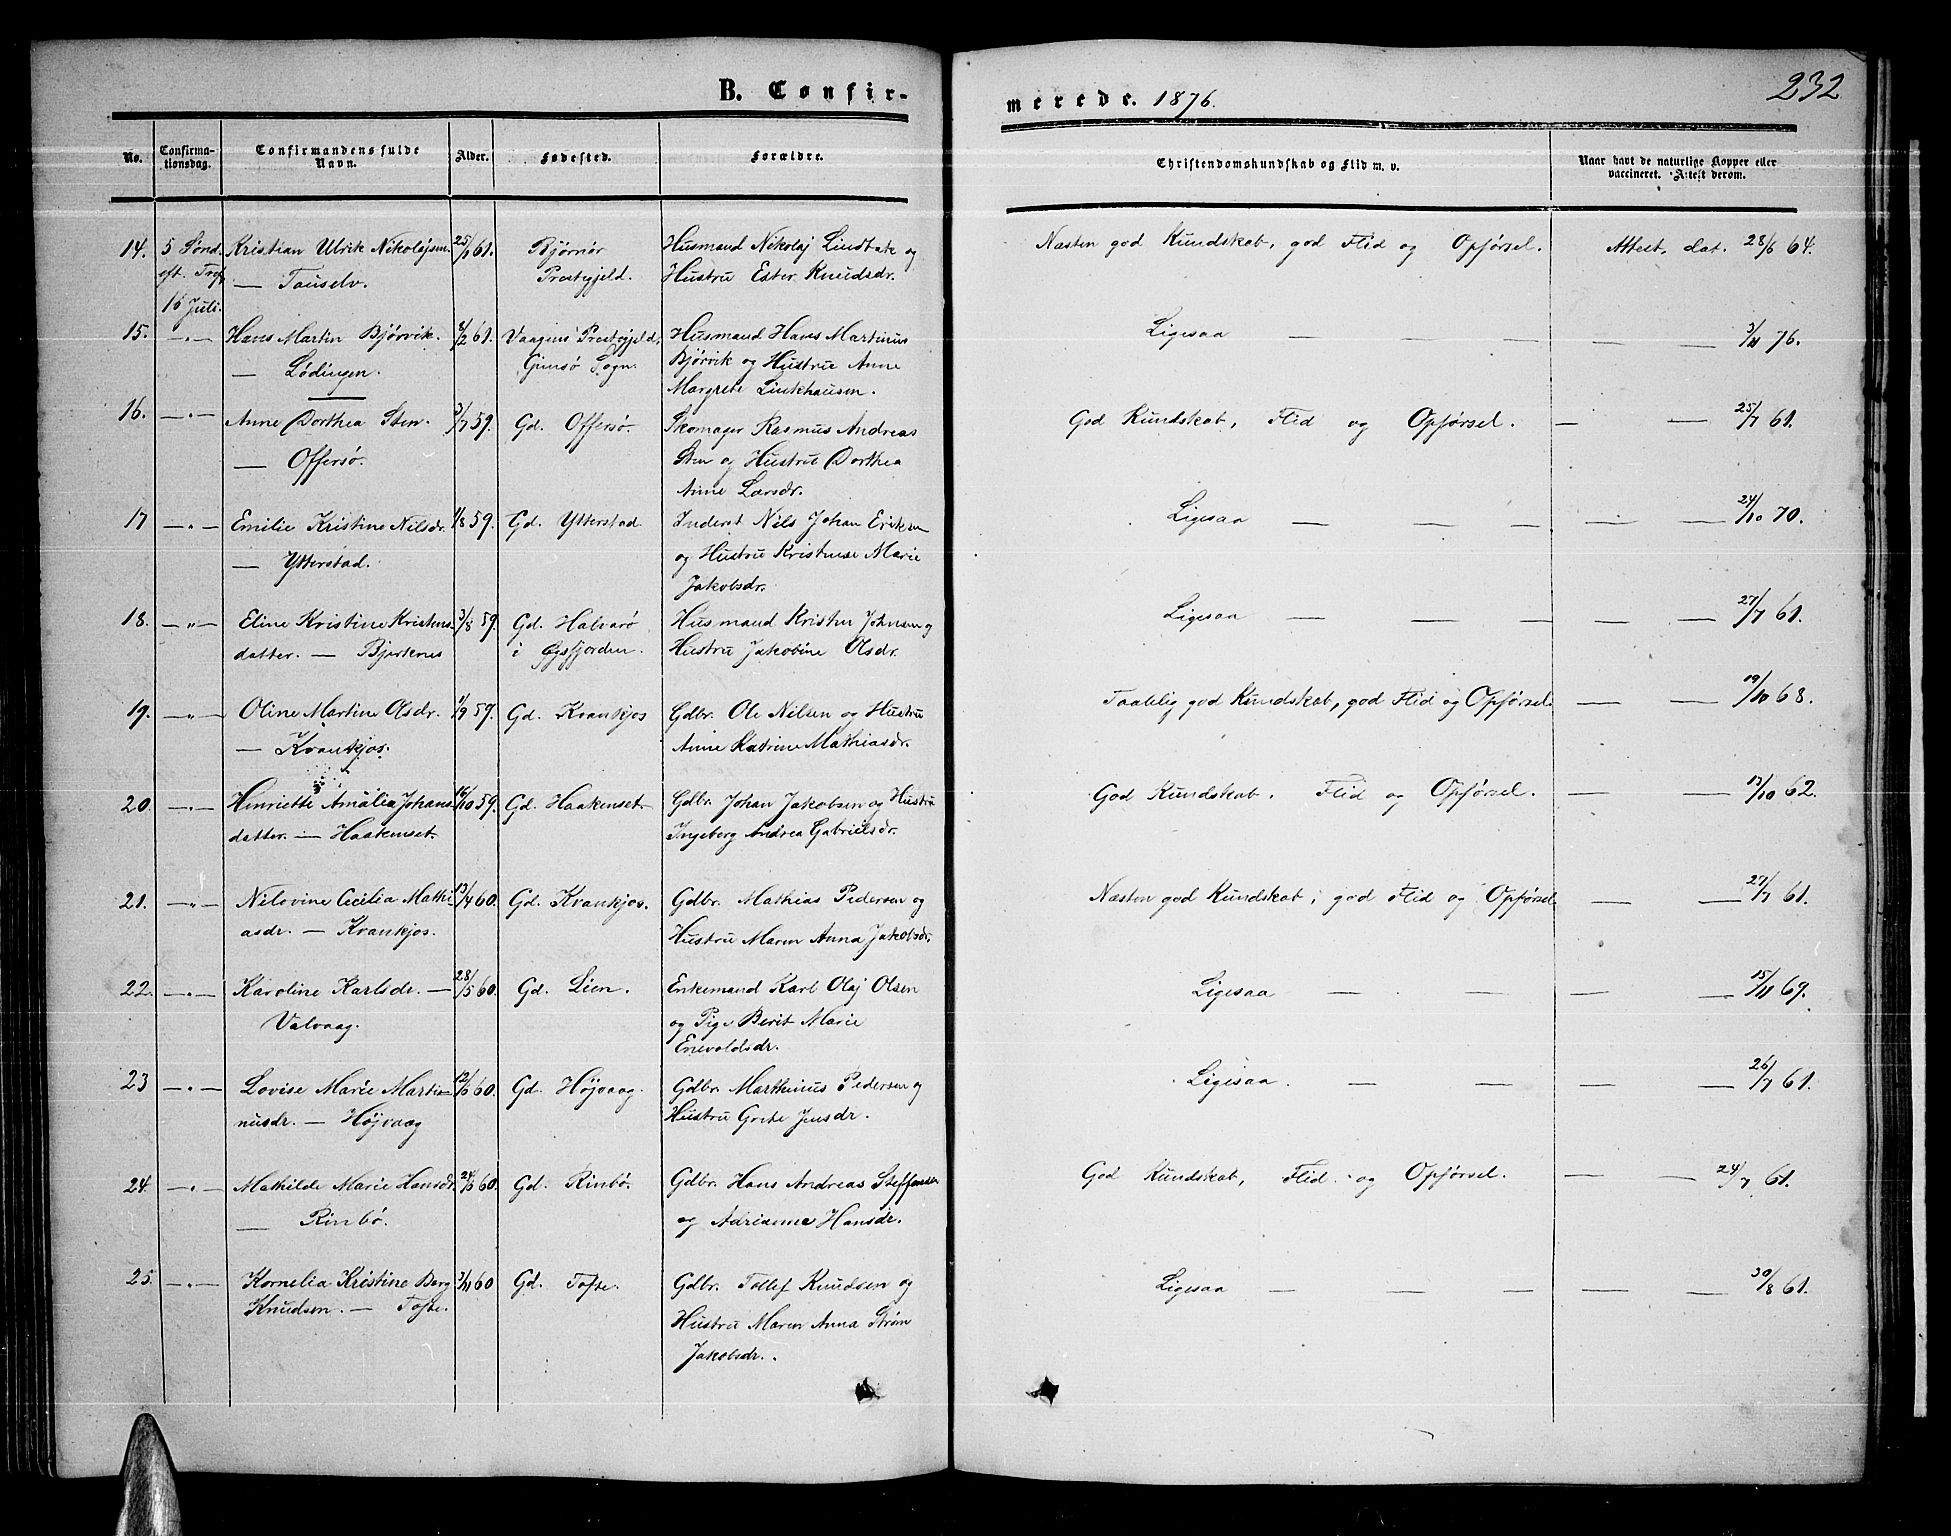 B. Confir-
merede. 1876.
232
No.
Confirma-
tionsdag.
Confirmandens fulde
Navn.
Alder.
Fødested.
Forældre.
Christendomskundskab og Flid m. v.
Naar havt de naturlige Kopper eller
vaccineret. Attest derom.
14. 5 Sønd. Kristian Ulrik Nikolajsen 25/1 61. Bjørnør Husmand Nikolaj Lindbak og Næsten god Kundskab, god Flid og Opførsel. Attest. dat. 28/6 64.
eft. Tref. — Tauselv. Prestegjeld. Hustru Ester Knudsdr.
16 Juli.
15. —"— Hans Martin Bjørvik. 8/2 61. Vaagens Prestegjeld, Husmand Hans Martinus Ligesaa — — — — — 3/11 76.
— Lødingen. Gimsø Sogn. Bjørvik og Hustru Anne
Margrete Linkhausen.
16. —"— Anne Dorthea Sten. 3/7 59. Gd. Offersø. Skomager Rasmus Andreas God Kundskab, Flid og Opførsel. — — 25/7 61.
— Offersø. Sten og Hustru Dorthea
Anne Larsdr.
17 —"— Emilie Kristine Nilsdr. 1/8 59. Gd. Ytterstad Inderst Nils Johan Eriksen Ligesaa — — — — — — 24/10 70.
— Ytterstad. og Hustru Kristense Marie
Jakobsdr.
18. —"— Eline Kristine Kristens- 3/8 59. Gd. Halvarø Husmand Kristen Johnsen og Ligesaa — — — — — — 27/7 61.
datter. — Bjerknes i Øgsfjorden. Hustru Jakobine Olsdr.
19. —"— Oline Martine Olsdr. 1/9 59. Gd. Kvankjos Gdbr. Ole Nilsen og Hustru Taalelig god Kundskab, god Flid og Opførsel. — — 19/10 68.
— Kvankjos. Anne Katrine Mathiasdr.
20. —"— Henriette Amalia Johans 16/10 59. Gd. Haakenset Gdbr. Johan Jakobsen og Hustru God Kundskab. Flid og Opførsel. — — 13/10 62.
datter. — Haakenset. Ingeborg Andrea Gabrielsdr.
21. —"— Nilovine Cecilia Mathi- 13/4 60. Gd. Kvankjos. Gdbr. Mathias Pedersen og Næsten god Kundskab, god Flid og Opførsel — — 27/7 61.
asdr. — Kvankjos. Hustru Maren Anna Jakobsdr.
22. —"— Karoline Karlsdr. — 28/5 60. Gd. Lien. Enkemand Karl Olaj Olsen Ligesaa — — — — — 15/11 69.
Valvaag. og Pige Berit Marie
Enevoldsdr.
23 —"— Lovise Marie Marti- 12/6 60. Gd. Højvaag. Gdbr. Marthinus Pedersen og Ligesaa. — — — — — 26/7 61.
nusdr. — Højvaag Hustru Grete Jensdr.
24. —"— Mathilde Marie Hansdr. 24/6 60. Gd. Rinbø. Gdbr. Hans Andreas Steffensen God Kundskab, Flid og Opførsel. — — 24/7 61.
— Rinbø. og Adrianne Hansdr.
25. —"— Kornelia Kristine Berg 3/11 60 Gd. Tofte. Gdbr. Tollef Knudsen og Ligesaa — — — — — — 30/8 61.
Knudsen. — Tofte. Hustru Maren Anna Strøm
Jakobsdr.